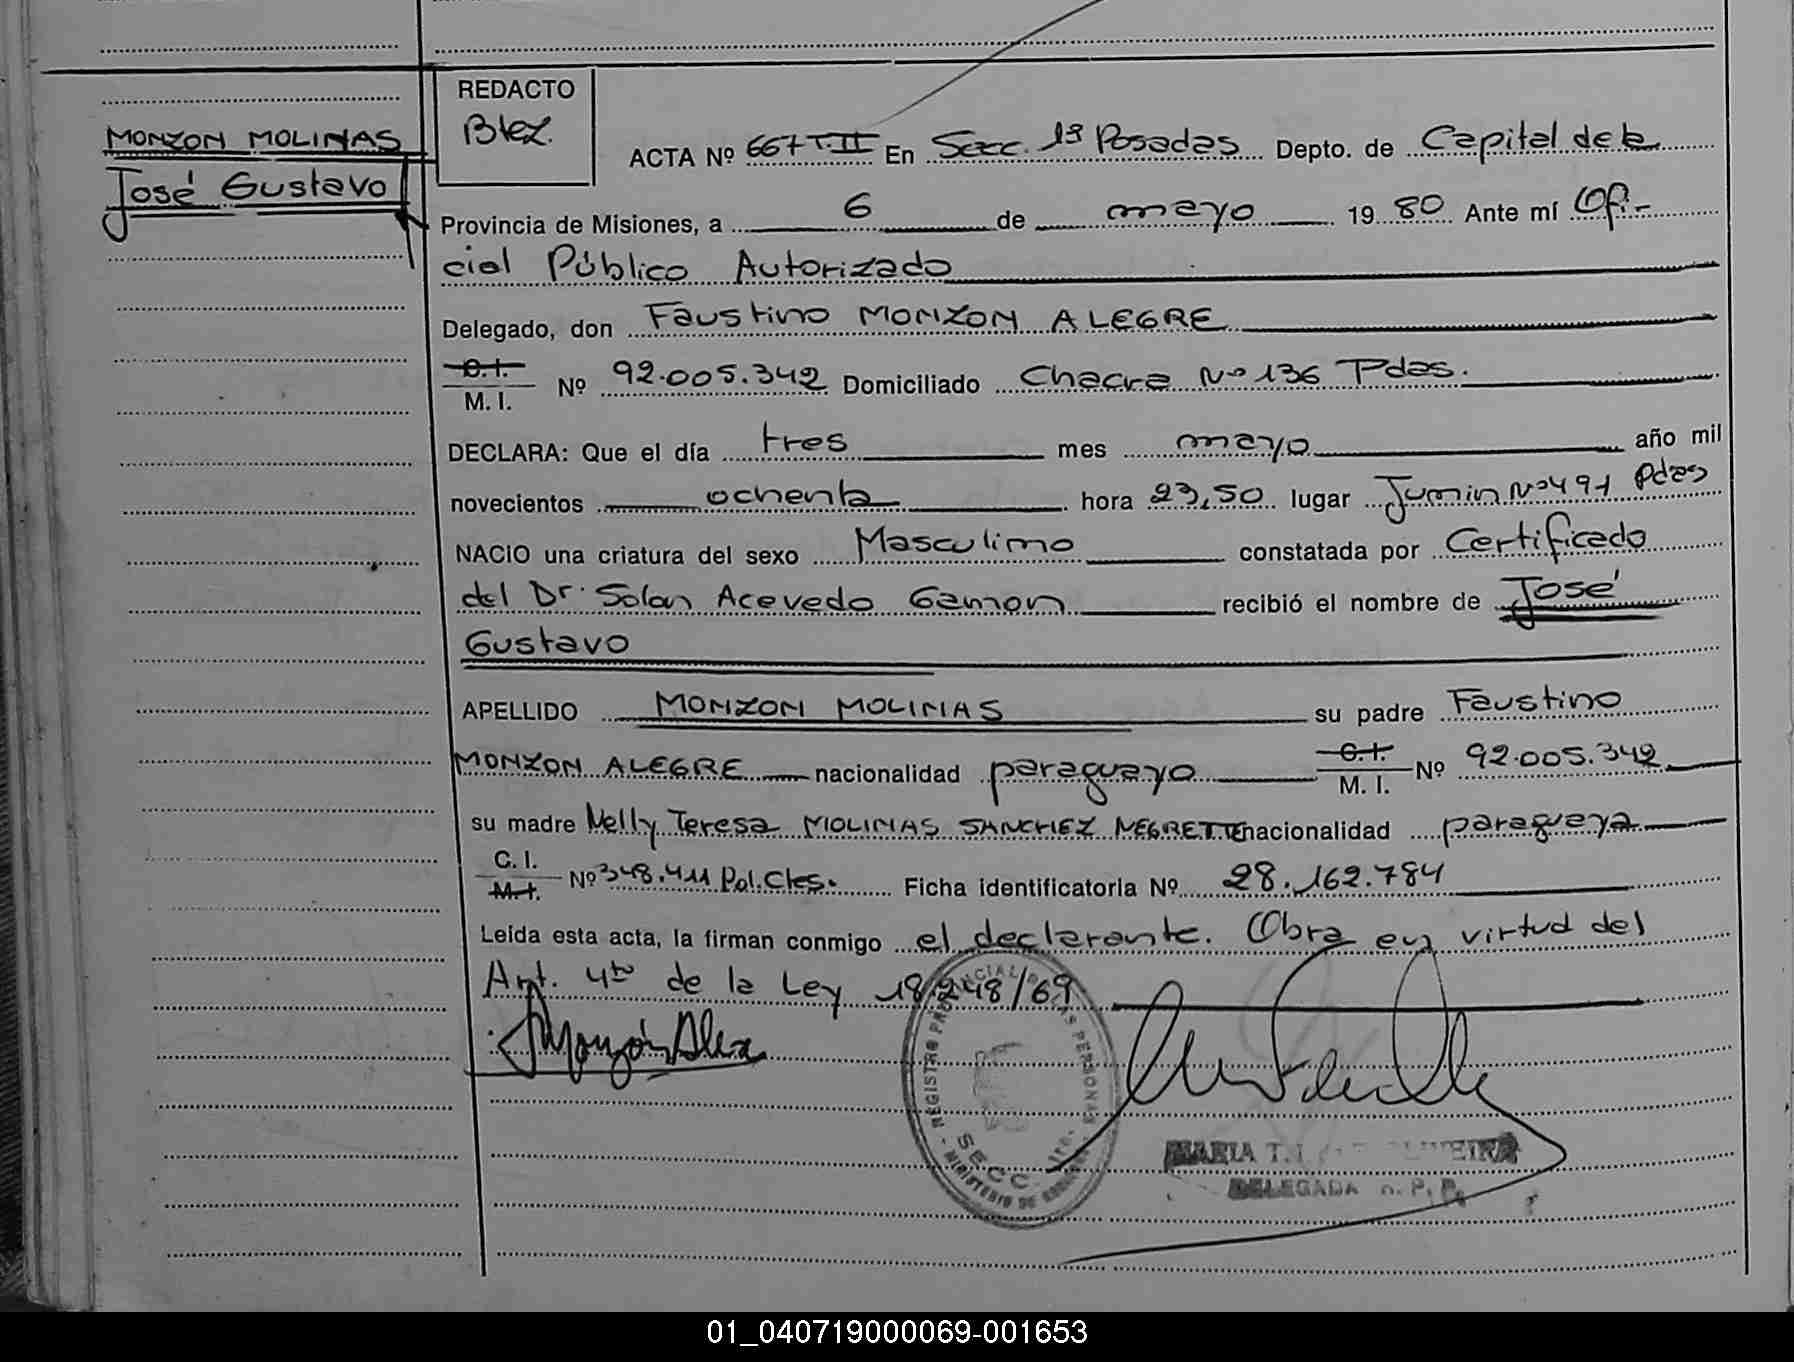 MONZON MOLINAS
José Gustavo
REDACTO
ACTA Nº 667 T.II En Secc. 1ª Posadas Depto. de Capital de la
Provincia de Misiones, a 6 de mayo 1980 Ante mí Ofi-
cial Público Autorizado
Delegado, don Faustino MONZON ALEGRE
C.I.
M. I. Nº 92.005.342 Domiciliado Chacra Nº 136 Pdas.
DECLARA: Que el día tres mes mayo año mil
novecientos ochenta hora 23,50 lugar Junin Nº 491 Pdas
NACIO una criatura del sexo Masculino constatada por Certificado
del Dr. Solan Acevedo Gamon recibió el nombre de José
Gustavo
APELLIDO MONZON MOLINAS su padre Faustino
MONZON ALEGRE nacionalidad paraguayo C.I. M. I. Nº 92.005.342
su madre Nelly Teresa MOLINAS SANCHEZ NEGRETTE nacionalidad paraguaya
C. I.
M.I. Nº 348.411 Pol.Ctes. Ficha identificatoria Nº 28.162.784
Leida esta acta, la firman conmigo el declarante. Obra en virtud del
Art. 4to de la Ley 18.248/69
REGISTRO PROVINCIAL DE LAS PERSONAS
SECC. 1ra.
MINISTERIO DE
MARIA T.
DELEGADA R. P. P.
01_040719000069-001653